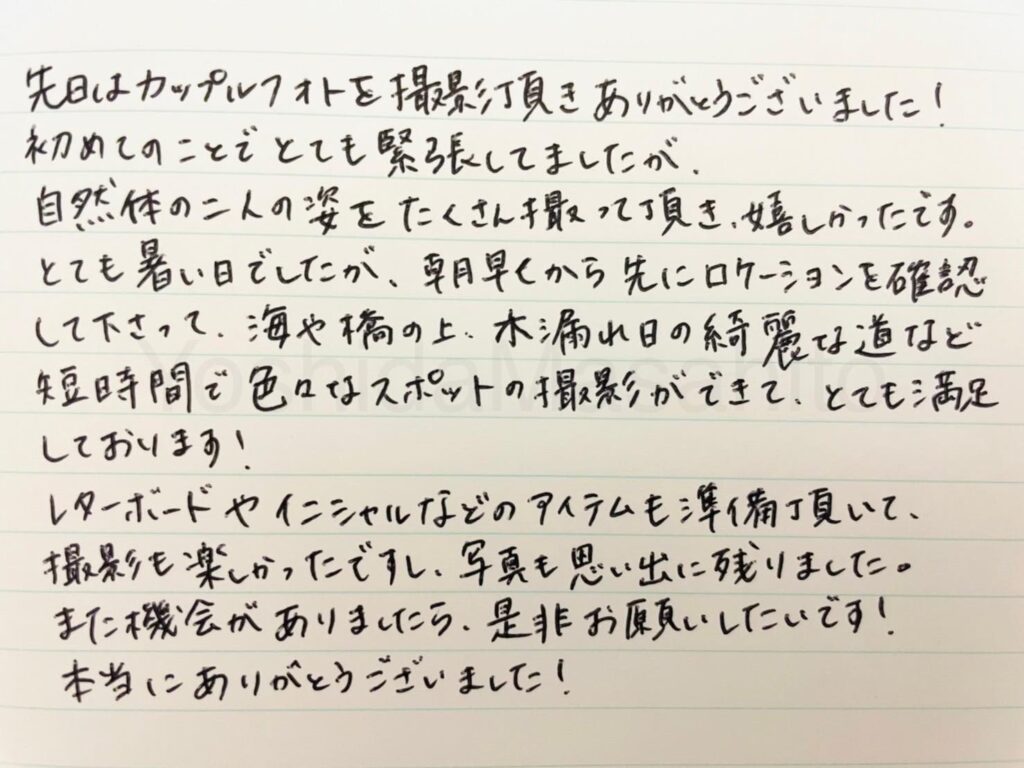 先日はカップルフォトを撮影頂きありがとうございました!
初めてのことでとても緊張してましたが、
自然体の二人の姿をたくさん撮って頂き、嬉しかったです。
とても暑い日でしたが、朝早くから先にロケーションを確認
して下さって、海や橋の上、木漏れ日の綺麗な道など
YoshidaMasahito
短時間で色々なスポットの撮影ができて、とても満足
しております!
レターボードやイニシャルなどのアイテムも準備頂いて、
撮影も楽しかったですし、写真も思い出に残りました。
また機会がありましたら、是非お願いしたいです!
本当にありがとうございました!